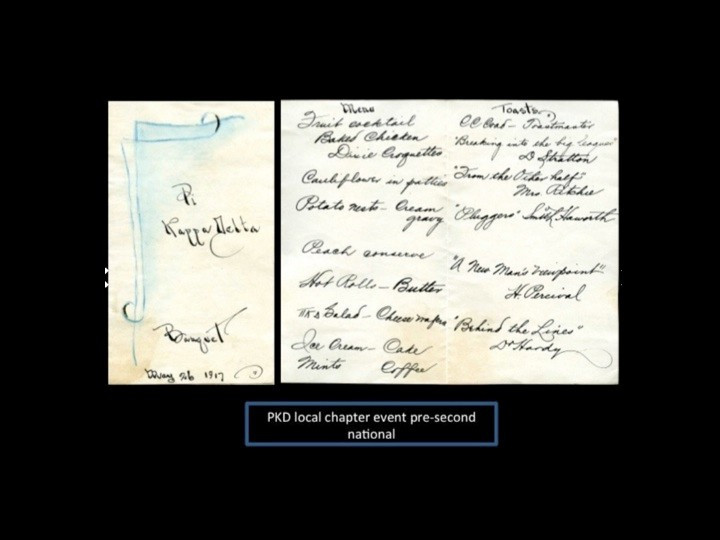 Pi
Kappa Delta
Banquet
May 26 1917
Menu
Fruit cocktail
Baked Chicken
Dixie Croquettes
Cauliflower in patties
Potato nests - Cream
gravy
Peach conserve
Hot Rolls - Butter
Salad - Cheese wafers
Ice Cream - Cake
Mints Coffee
Toasts
Toastmaster
"Breaking into the big leagues"
D Stratton
"From the Other half"
Mrs. Ritchie
"Pluggers" Smith Haworth
"A New Man's Viewpoint"
H. Percival
"Behind the Lines"
Dr Hardy
PKD local chapter event pre-second
national